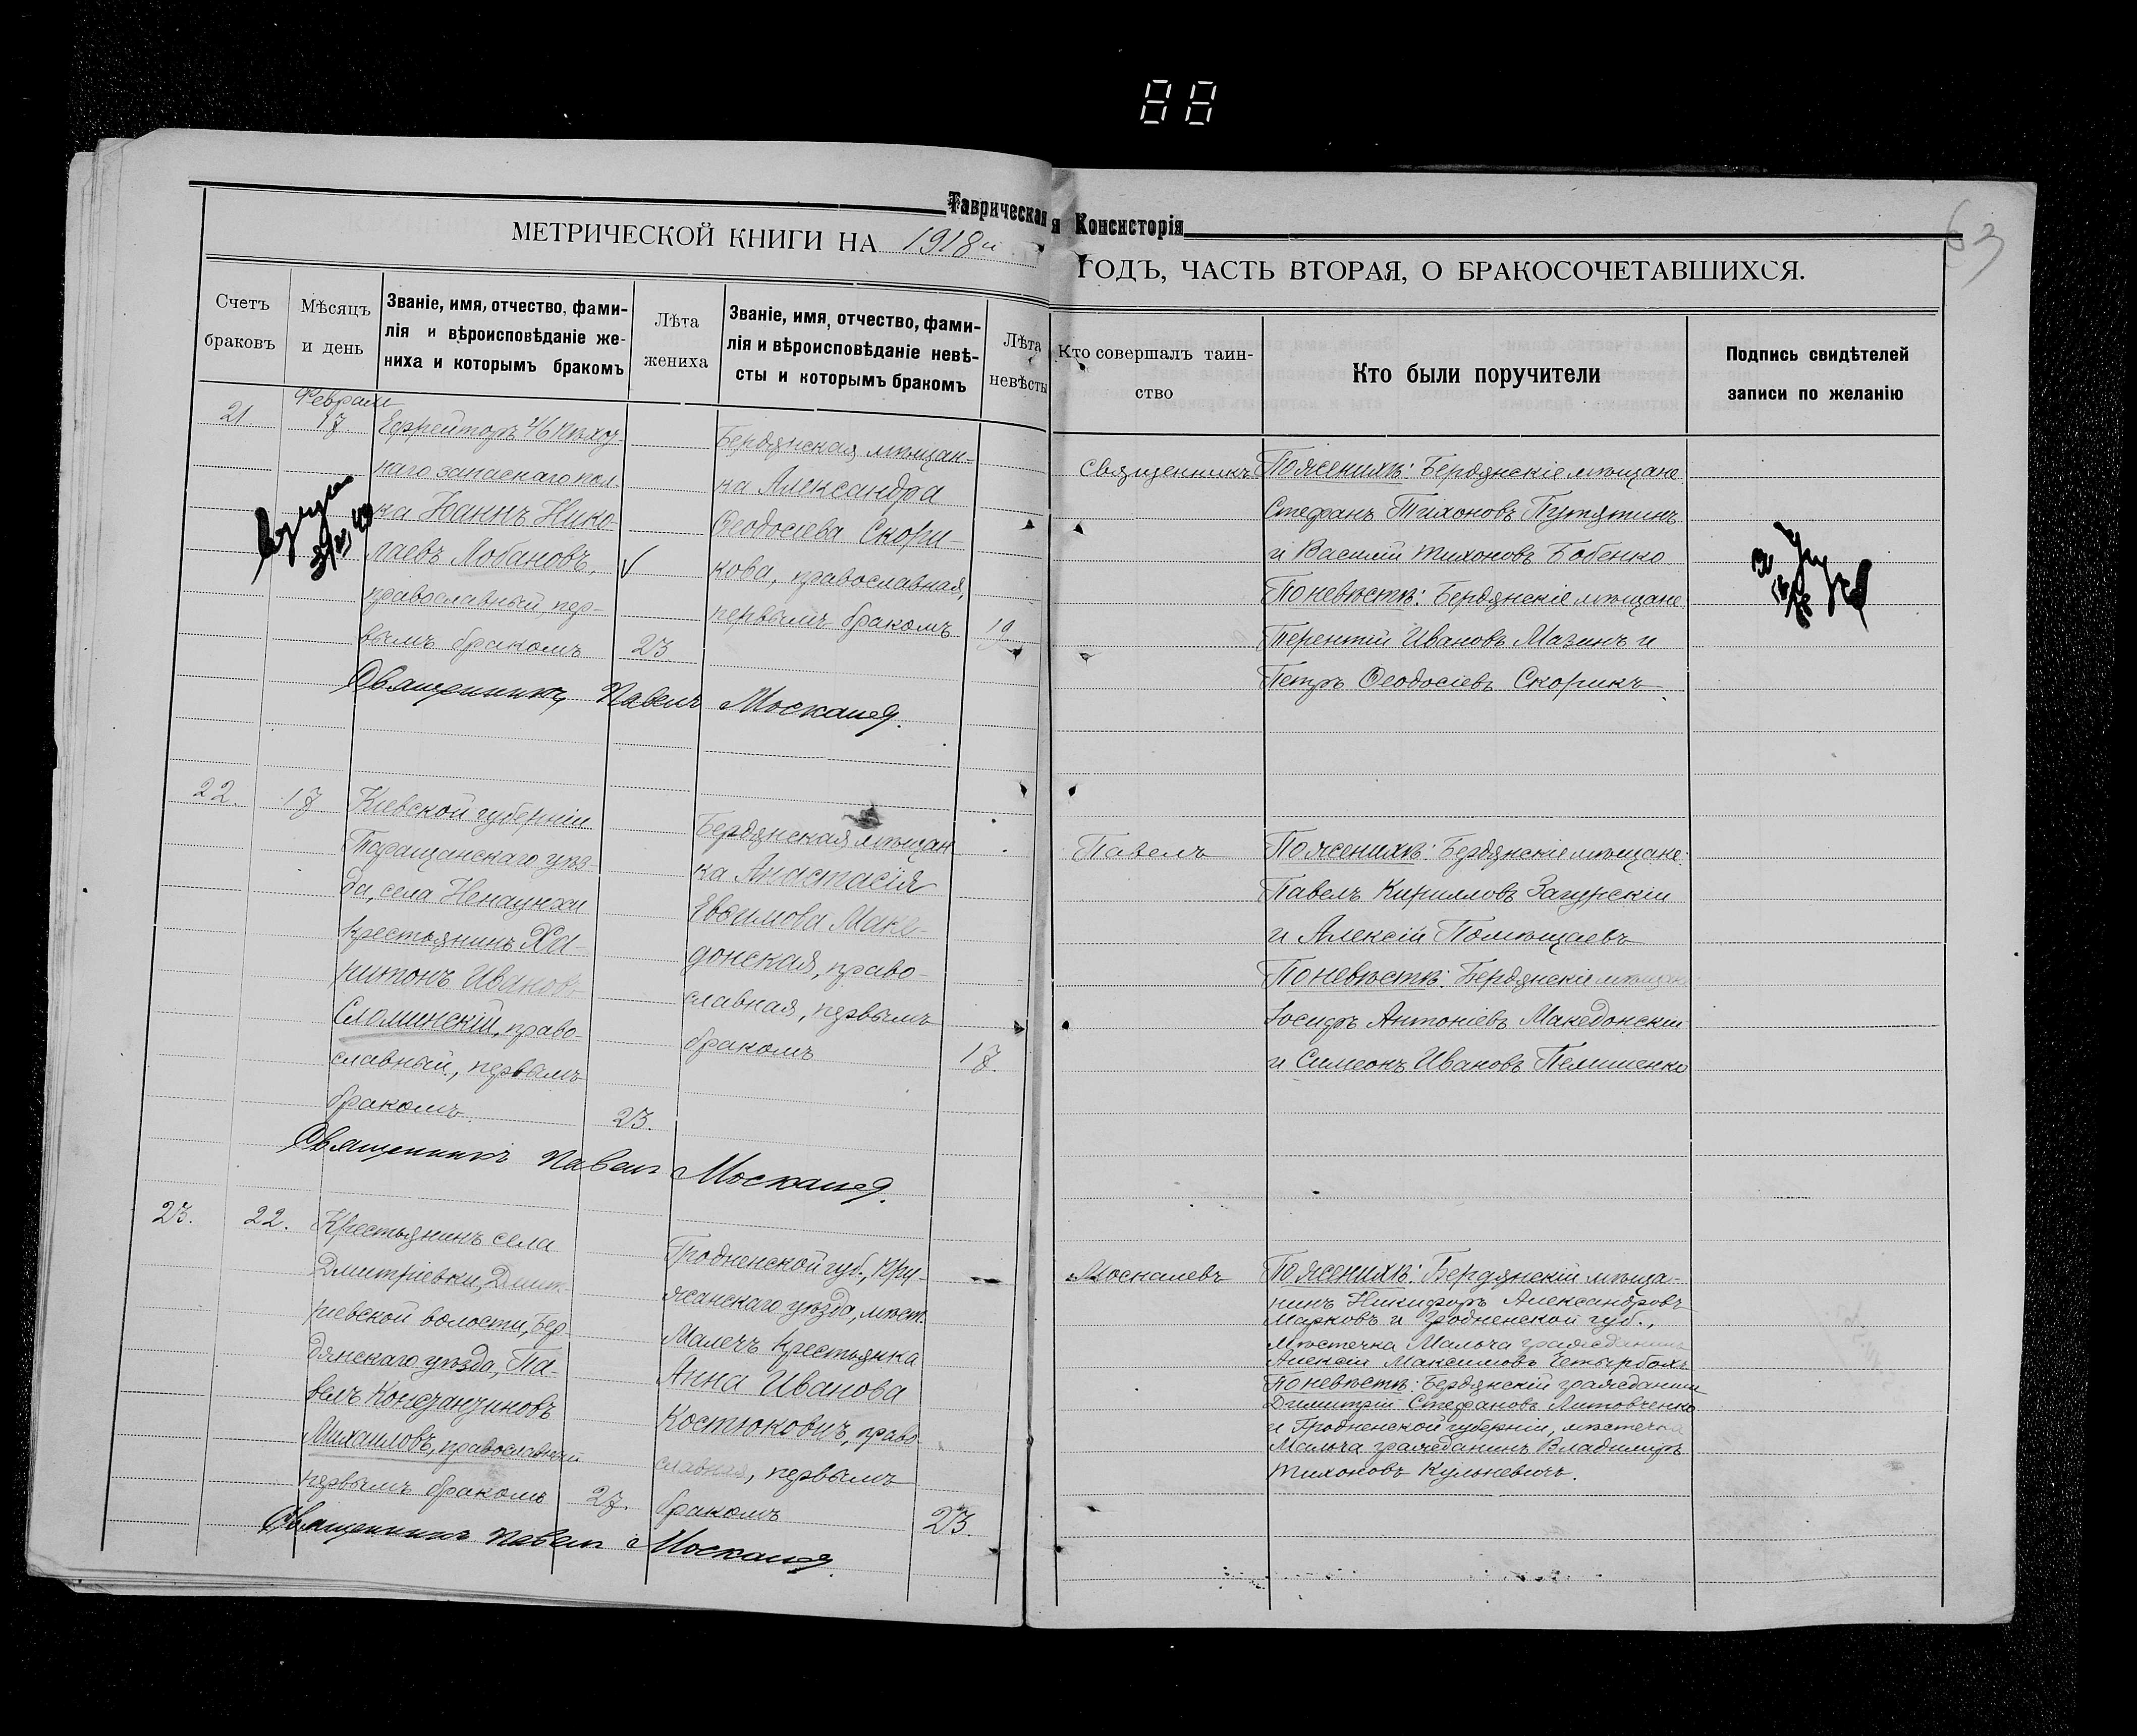 88
Таврическая Консисторія
63
МЕТРИЧЕСКОЙ КНИГИ НА 1918й
ГОДЪ, ЧАСТЬ ВТОРАЯ, О БРАКОСОЧЕТАВШИХСЯ.
Счетъ браковъ
Мѣсяцъ и день
Званіе, имя, отчество, фами-
лія и вѣроисповѣданіе же-
ниха и которымъ бракомъ
Лѣта жениха
Званіе, имя, отчество, фами-
лія и вѣроисповѣданіе невѣ-
сты и которымъ бракомъ
Лѣта невѣсты
Кто совершалъ таин-
ство
Кто были поручители
Подпись свидѣтелей
записи по желанію
21
Февраля
17
Ефрейторъ 46 пѣхот-
наго запаснаго пол-
ка Іоаннъ Нико-
лаевъ Лобановъ,
православный, пер-
вымъ бракомъ
23
Бердянская мѣщан-
ка Александра
Ѳеодосіева Скори-
кова, православная,
первымъ бракомъ
19
Священникъ Павелъ Москалев
Священникъ
По женихѣ: Бердянскіе мѣщане
Стефанъ Тихоновъ Путятинъ
и Василій Тихоновъ Бабенко
По невѣстѣ: Бердянскіе мѣщане
Терентій Ивановъ Мазинъ и
Петръ Ѳеодосіевъ Скорикъ
22.
17
Кіевской губерніи
Таращанскаго уѣз-
да, села
крестьянинъ Ха-
ритонъ Ивановъ
Сломинскій, право-
славный, первымъ
бракомъ
23.
Бердянская мѣщан
ка Анастасія
Евѳимова Маке-
донская, право-
славная, первымъ
бракомъ
17.
Священникъ Павелъ Москалев
Павелъ
По женихѣ: Бердянскіе мѣщане:
Павелъ Кирилловъ Загурскій
и Алексій Помѣщаевъ
По невѣстѣ: Бердянскіе мѣщане
Іосифъ Антоніевъ Македонскій
и Симеонъ Ивановъ
23.
22.
Крестьянинъ села
Дмитріевки, Дмит-
ріевской волости, Бер-
дянскаго уѣзда, Па-
велъ Константиновъ
Михаиловъ, православный
первымъ бракомъ
27.
Гродненской губ., Пру-
жанскаго уѣзда, мѣст.
Малечъ крестьянка
Анна Иванова
Костюковичъ, право-
славная, первымъ
бракомъ
23.
Священникъ Павелъ Москалев
Москалевъ
По женихѣ: Бердянскій мѣща-
нинъ Никифоръ Александровъ
Марковъ и Гродненской губ.,
мѣстечка Мальча гражданинъ
Алексій Максимовъ Четырбокъ
По невѣстѣ: Бердянскій гражданинъ
Димитрій Стефановъ Литовченко
и Гродненской губерніи, мѣстечка
Мальча гражданинъ Владиміръ
Тихоновъ Кульневичъ.